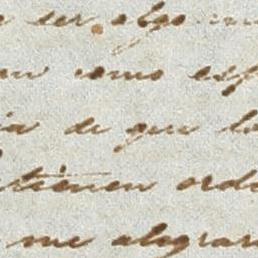 ser algo
como esp
de que la
tienen orde
me alegrar